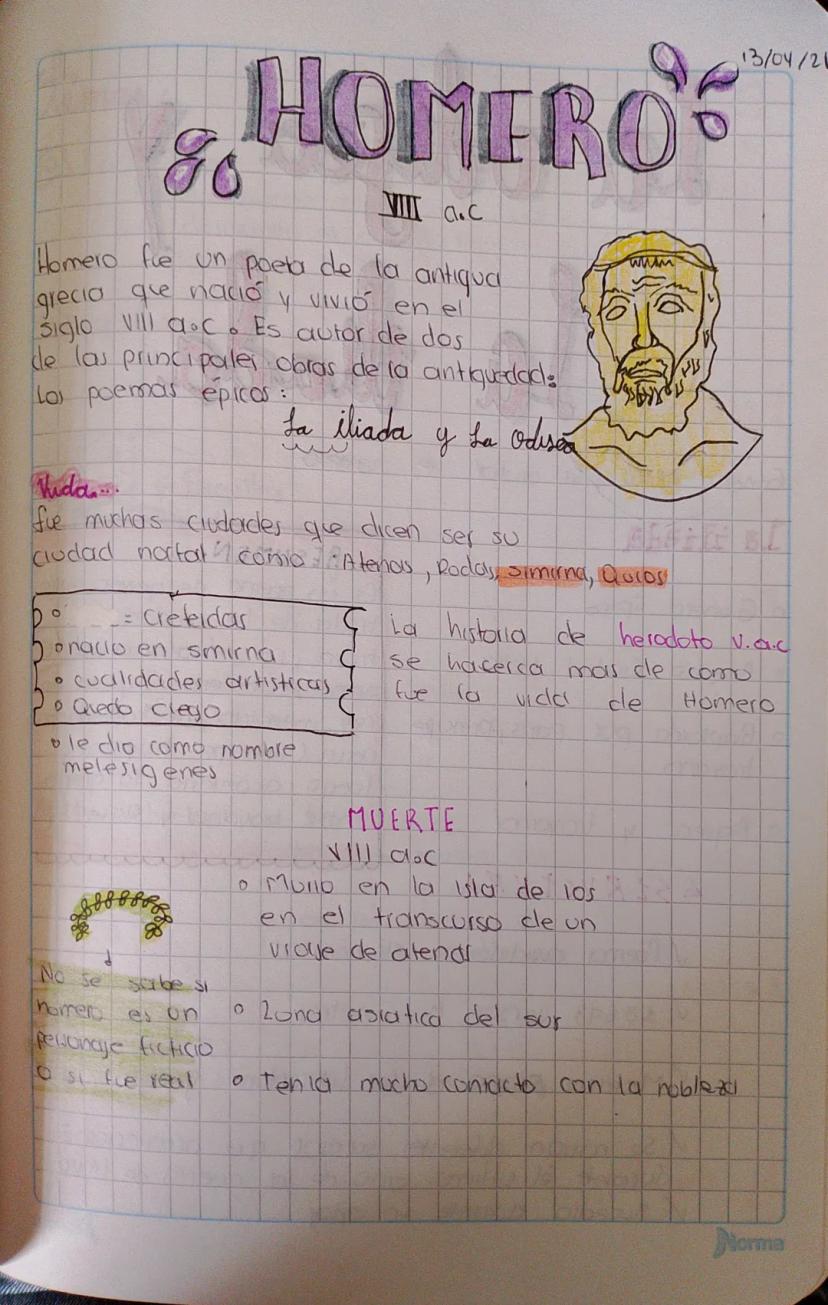 13/04/21
HOMERO
VIII a.c
Homero fue un poeta de la antigua
grecia que nació y vivió en el
siglo VIII a.c. Es autor de dos
de las principales obras de la antiguedad:
Los poemas épicos:
La iliada y La odisea
Vida...
fue muchas ciudades que dicen ser su
ciudad nartal como: Atenas, Rodas, simirna, Quios
= creteidas
nacio en smirna
cualidades artisticas
Quedo ciego
le dio como nombre
melesigenes
La historia de herodoto v.a.c
se hacerca mas de como
fue la vida de Homero
MUERTE
VIII a.c
Murio en la isla de ios
en el transcurso de un
viaje de atenas
Zona asiatica del sur
Tenia mucho contacto con la nobleza
No se sabe si
homero es un
personaje ficticio
O si fue real
Norma